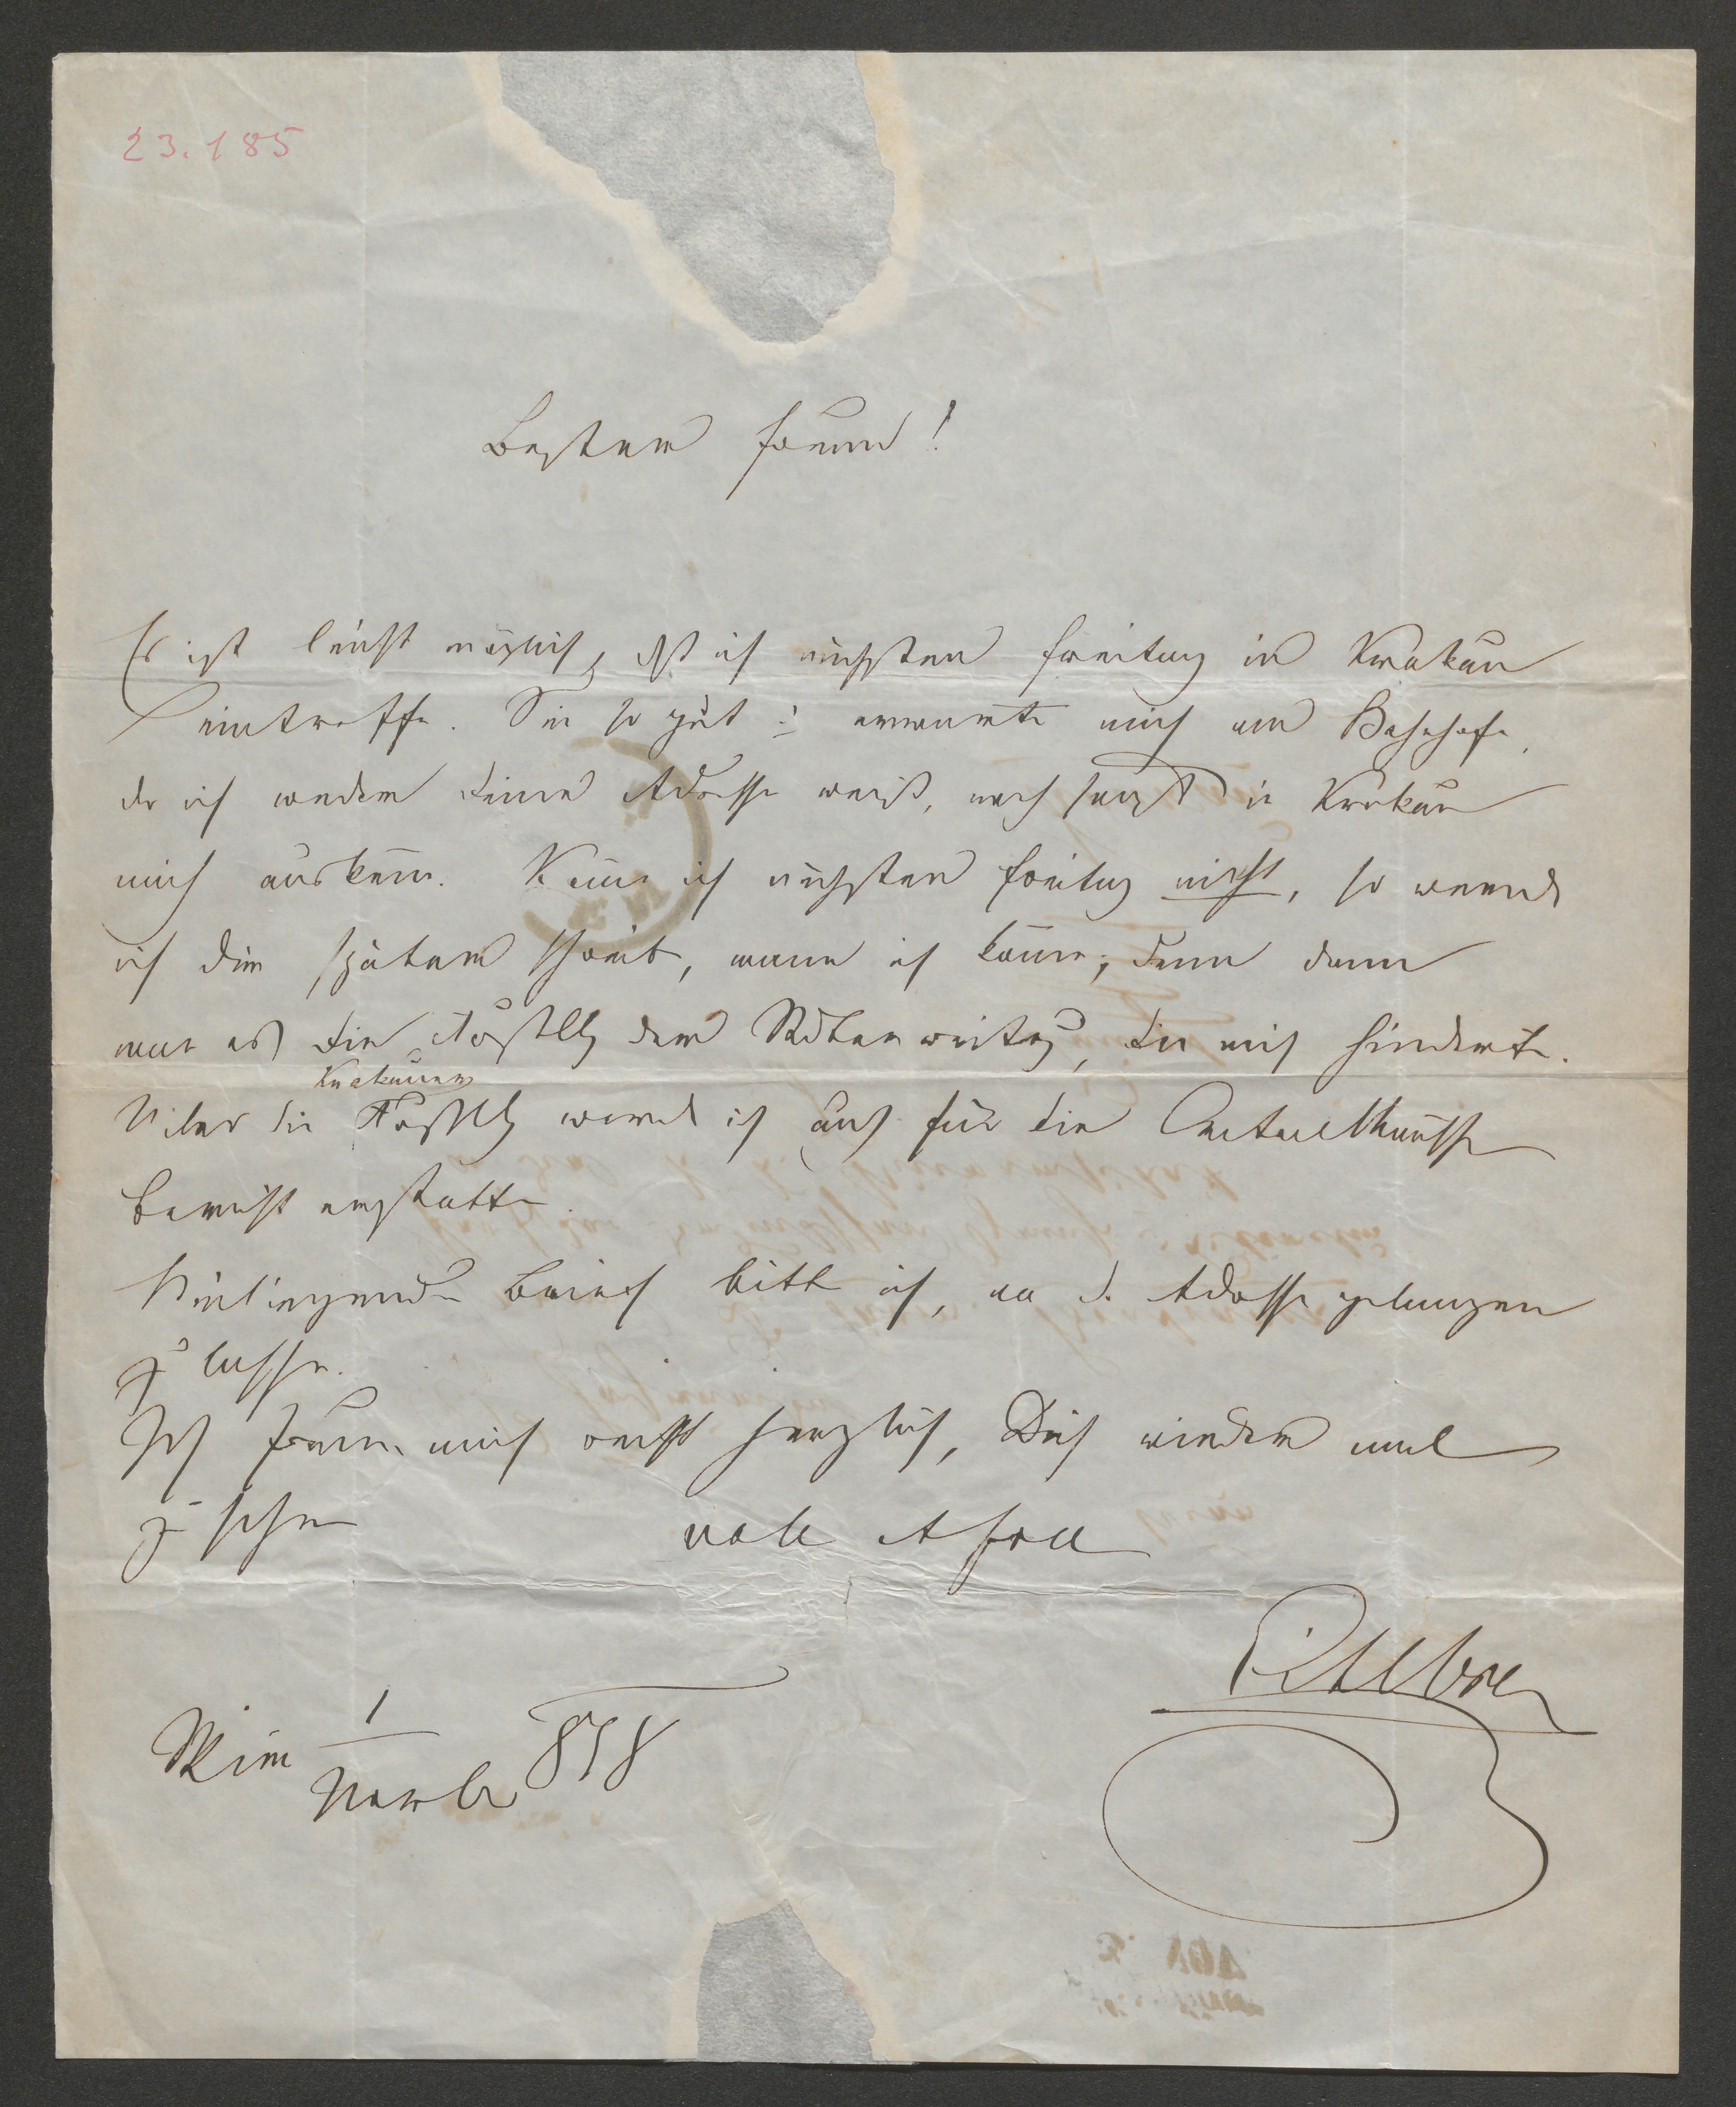 23.185
Bester Freund!
Es ist leicht möglich, dß ich nächsten Freitag in Krakau
eintreffe. Sei so gut u erwarte mich am Bahnhofe,
da ich weder deine Adresse weiß, noch sonst in Krakau
mich auskenne. Kome ich nächsten Freitag nicht, so werde
ich dir später schreib, wann ich kome, denn dann
war es die der die mich hinderte.
Krakauer
Über die werde ich auch für die
Bericht erstatten.
Beiliegenden Brief bitte ich, an d. Adresse gelangen
zu lassen.
Ich freue mich recht herzlich, Dich wieder mal
zu sehen
Wien 1
Novbr 858